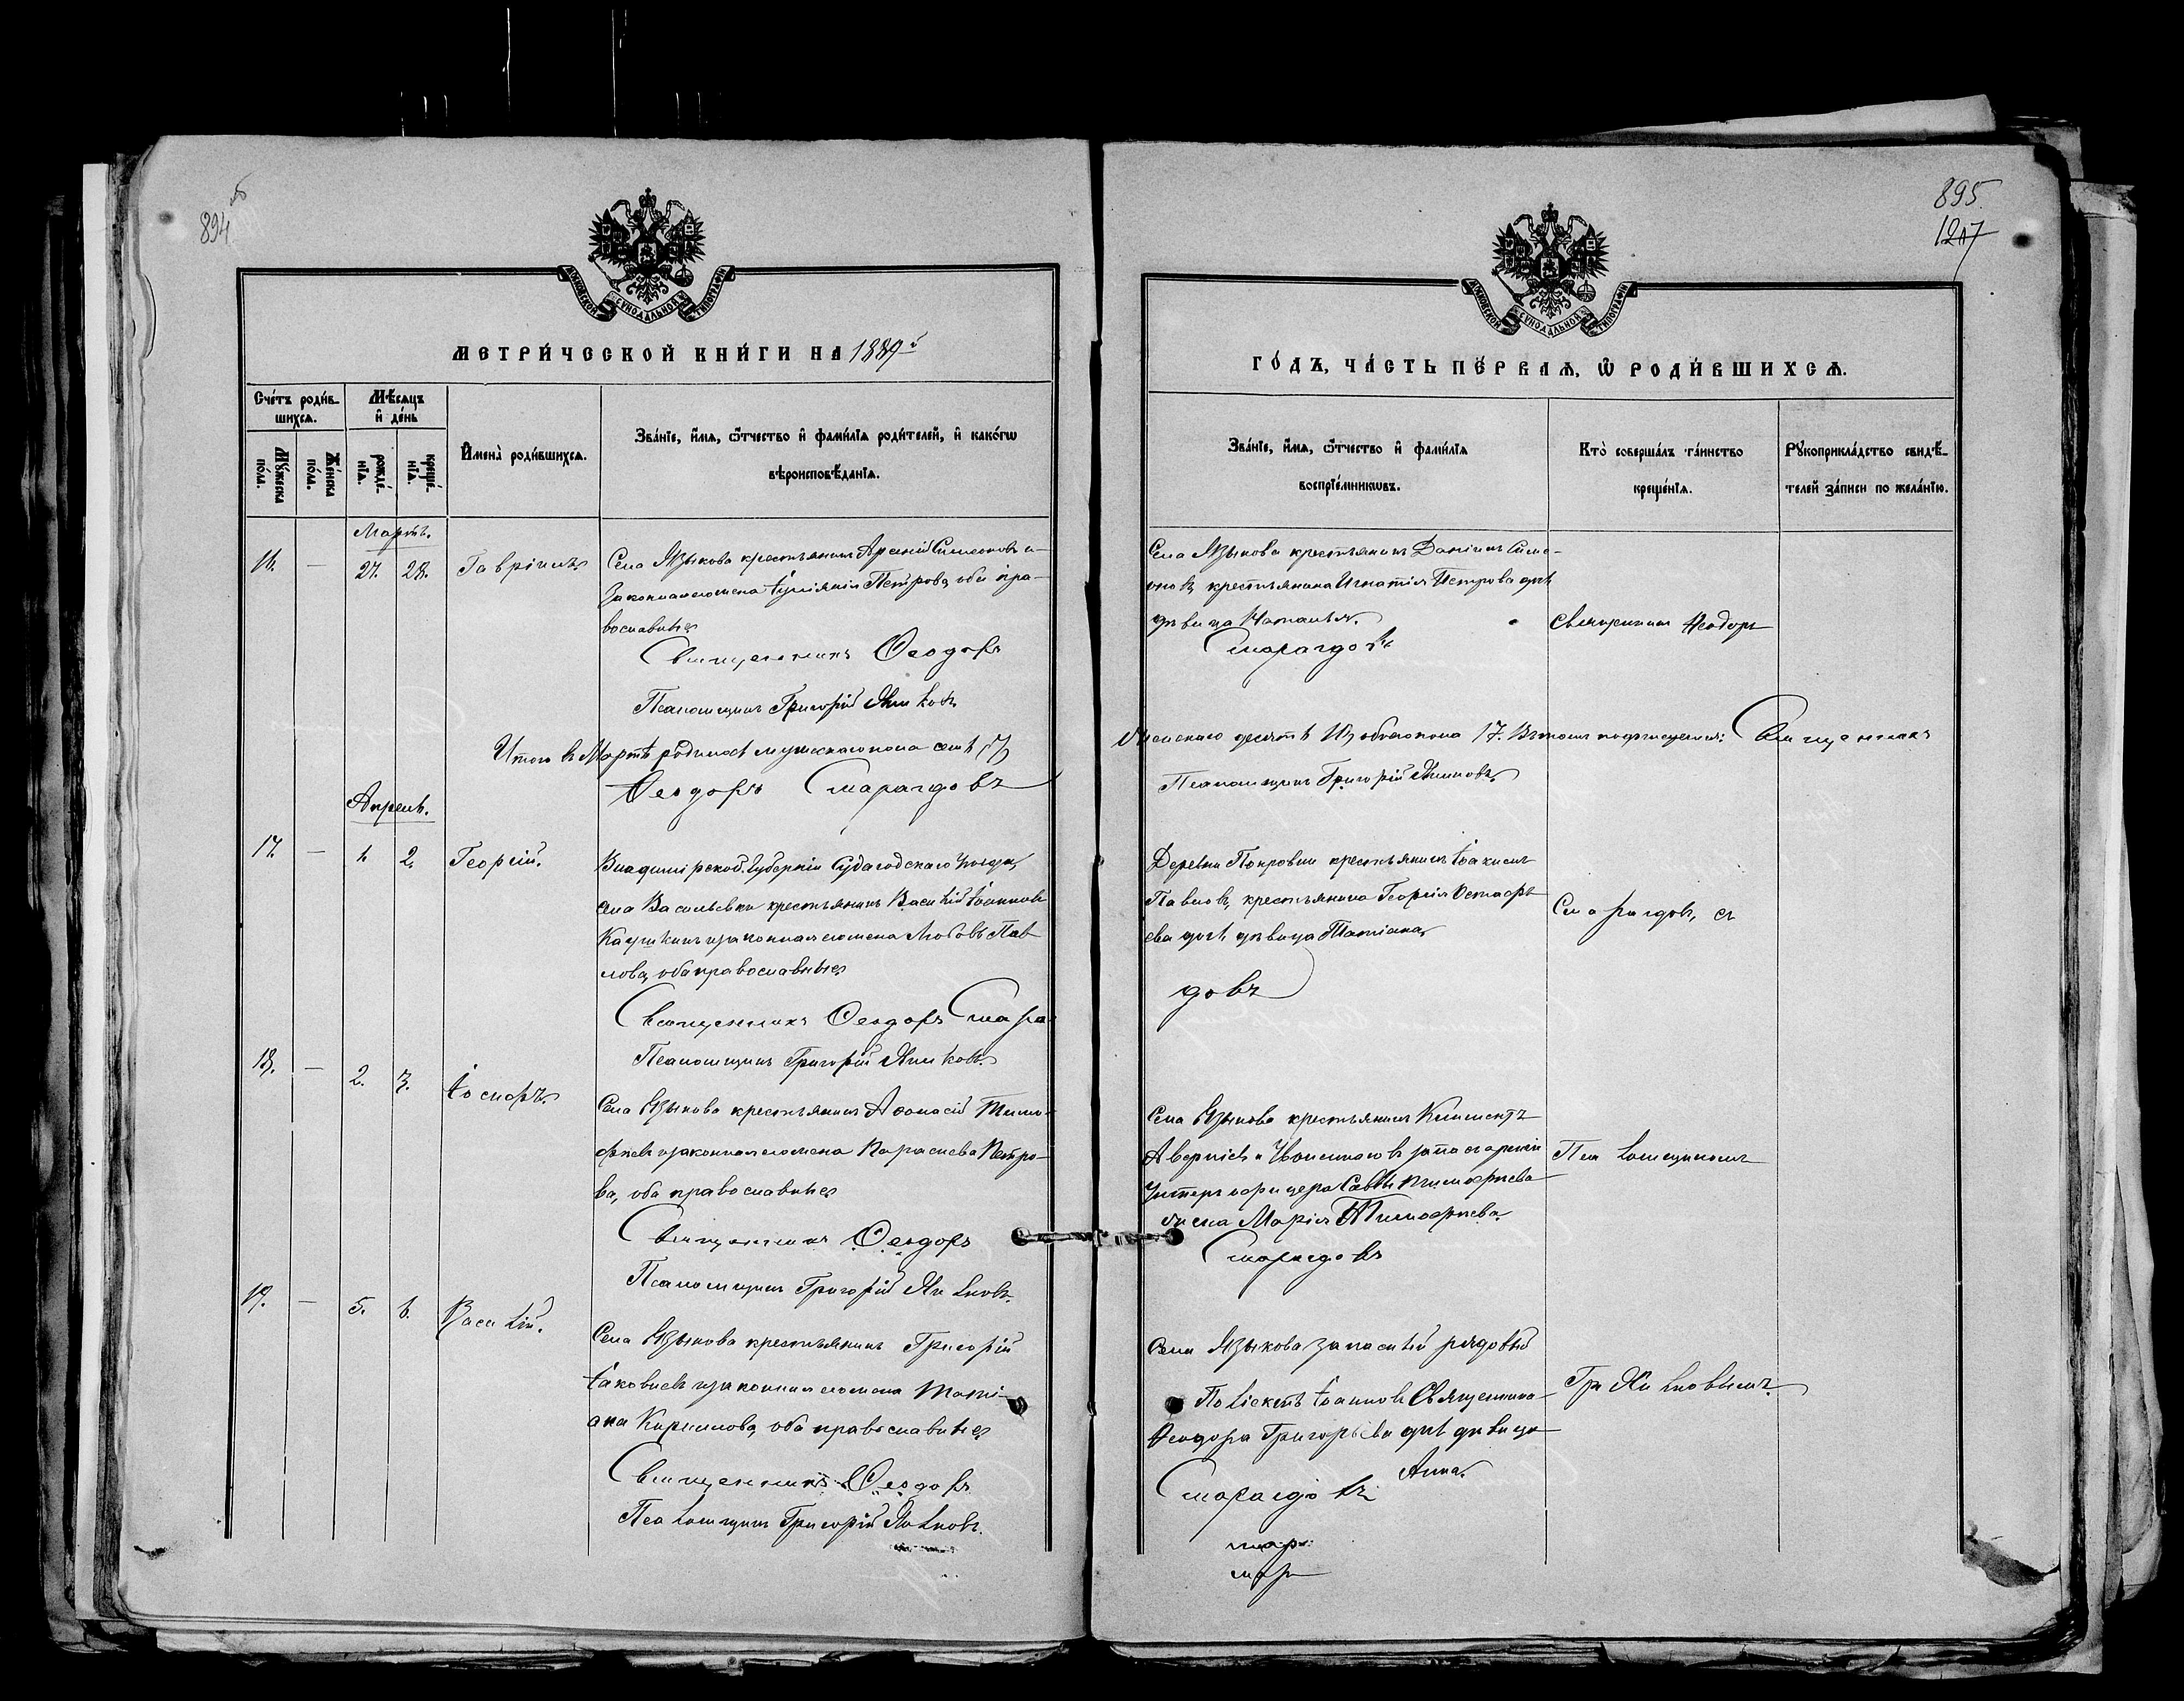 894 об
МЕТРИ́ЧЕСКОЙ КНИ́ГИ НА 1889 й
Сче́тъ роди́в-
шихсѧ.
Мѣ́сѧцъ
и҆ де́нь
Мꙋ́жеска
по́ла.
Же́нска
по́ла.
рожде́-
нїѧ.
креще́-
нїѧ.
И҆мена̀ роди́вшихсѧ.
Зва́нїе, и҆́мѧ, ѻ҆́тчество и҆ фами́лїѧ роди́телей, и҆ како́гѡ
вѣроисповѣ́данїѧ.
Мартъ.
16. — 27. 28. Гавріилъ
Села Языкова крестьянинъ Арсеній Симеоновъ и
законная его жена Іуліанія Петрова, оба пра-
вославные
Священникъ Ѳеодоръ
Псаломщикъ Григорій Яшковъ
Итого въ Мартѣ родилось мужскаго пола семь (7)
Ѳеодоръ Смарагдовъ
Апрель.
17. — 1. 2. Георгій.
Владимірской губерніи Судогодскаго уѣзда,
села Васильевки крестьянинъ Василій Іоанновъ
и законная его жена Любовь Пав
лова, оба православные
Священникъ Ѳеодоръ Смараг
Псаломщикъ Григорій Яшковъ
18. — 2. 3. Іосифъ.
Села Языкова крестьянинъ Аѳанасій Тимо-
феевъ и законная его жена Параскева Петро-
ва, оба православные
Священникъ Ѳеодоръ
Псаломщикъ Григорій
19. — 5. 6. Василій.
Села Языкова крестьянинъ Григорій
Іаковлевъ и законная его жена Тати-
ана Кириллова, оба православные
Священникъ Ѳеодоръ
Псаломщикъ Григорій
895
1207
ГО́ДЪ, ЧА́СТЬ ПЕ́РВАѦ, Ѡ҆ РОДИ́ВШИХСѦ.
Зва́нїе, и҆́мѧ, ѻ҆́тчество и҆ фами́лїѧ
воспрїе́мникѡвъ.
Кто̀ соверша́лъ та́инство
креще́нїѧ.
Рꙋкоприкла́дство свидѣ́-
телей за́писи по жела́нїю.
Села Языкова крестьянинъ Даніилъ Симе-
оновъ, крестьянина Игнатія Петрова дочь
дѣвица Наталья.
Священникъ Ѳеодоръ
Смарагдовъ
женскаго десять Из обоего пола 17. Въ томъ подписуемся: Священникъ
Псаломщикъ Григорій Яшковъ
Деревни Покровки крестьянинъ Іоакимъ
Павловъ, крестьянина Георгія Остафь
ева дочь дѣвица Татіана
Смарагдовъ, съ
довъ
Села Языкова крестьянинъ Климентъ
Аверкіевъ и запаснаго
унтеръ офицера Саввы Тимоѳеева
жена Марія Тимоѳеева.
Псаломщикомъ
Смарагдовъ
Села Языкова запасный рядовый
Поліектъ Іоанновъ Священника
Ѳеодора Григорьева дочь дѣвица
Анна.
Смарагдовъ
мар
мар